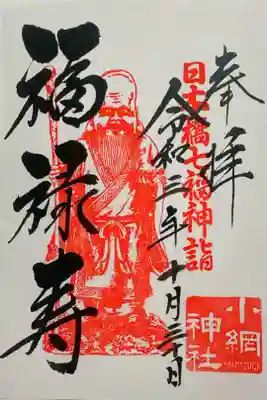 奉拝
日本橋七福神詣
令和三年十月三十日
福禄寿
小網神社